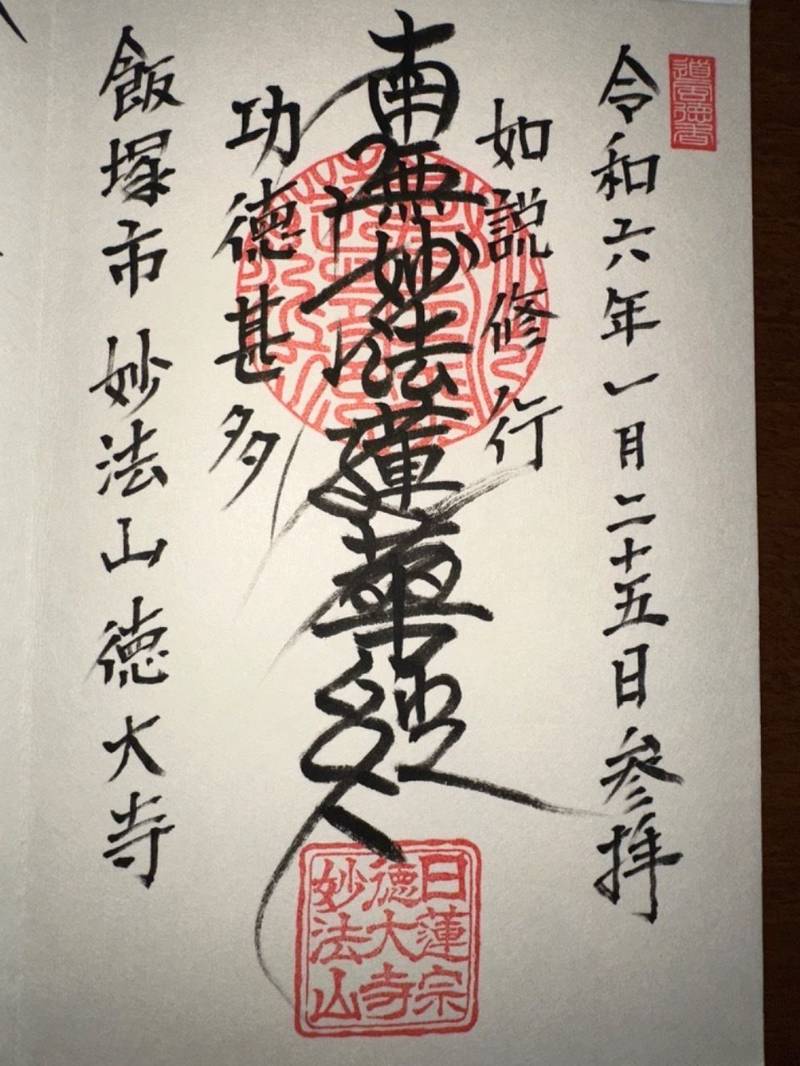 令和六年一月二十五日参拝
如説修行
南無妙法蓮華経
功徳甚多
飯塚市 妙法山 徳大寺
日蓮宗
徳大寺
妙法山